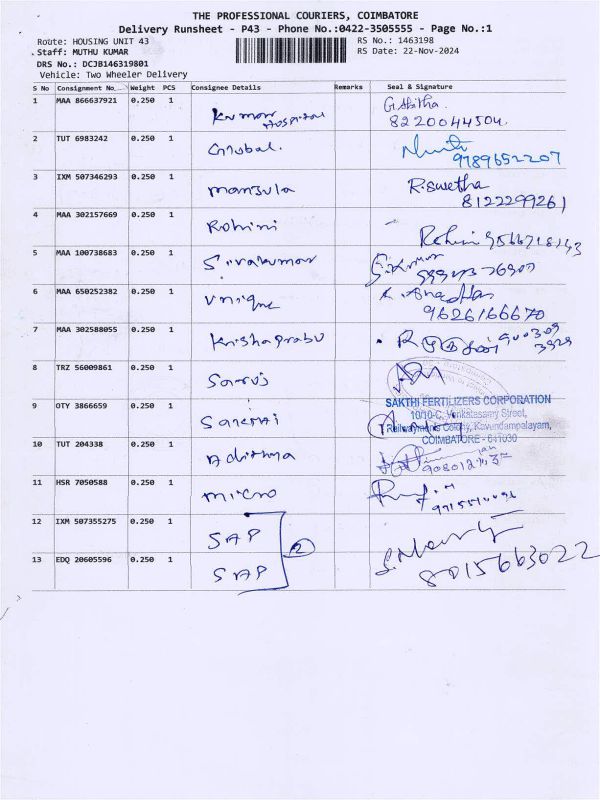 THE PROFESSIONAL COURIERS, COIMBATORE
Delivery Runsheet - P43 - Phone No.:0422-3505555 - Page No.:1
Route: HOUSING UNIT 43
RS No.: 1463198
Staff: MUTHU KUMAR
RS Date: 22-Nov-2024
DRS No.: DCJB146319801
Vehicle: Two Wheeler Delivery
S No Consignment No Weight PCS Consignee Details Remarks Seal & Signature
1 MAA 866637921 0.250 1 Kumar Hospital
8220044504
2 TUT 6983242 0.250 1 Global.
9789652207
3 IXM 507346293 0.250 1 Manjula R.Swetha
8122299261
4 MAA 302157669 0.250 1 Rohini Rohini
5 MAA 100738683 0.250 1 Sivakumar S.Kumar
6 MAA 650252382 0.250 1 Unique
9626166670
7 MAA 302588055 0.250 1 Krishaprabu
8 TRZ 56009861 0.250 1
SAKTHI FERTILIZERS CORPORATION
9 OTY 3866659 0.250 1
10/10-C, Venkatasamy Street,
Railwaymens Colony, Kavundampalayam,
COIMBATORE - 641030
10 TUT 204338 0.250 1 Adithya
11 HSR 7050588 0.250 1 micro
12 IXM 507355275 0.250 1 SAP
2
13 EDQ 20605596 0.250 1 SAP
8015663022